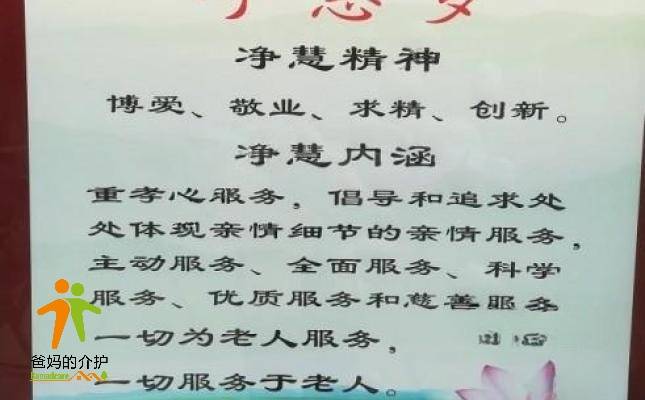 净慧精神
博爱、敬业、求精、创新。
净慧内涵
重孝心服务，倡导和追求处
处体现亲情细节的亲情服务，
主动服务、全面服务、科学
服务、优质服务和慈善服务
一切为老人服务，
一切服务于老人。
爸妈的介护